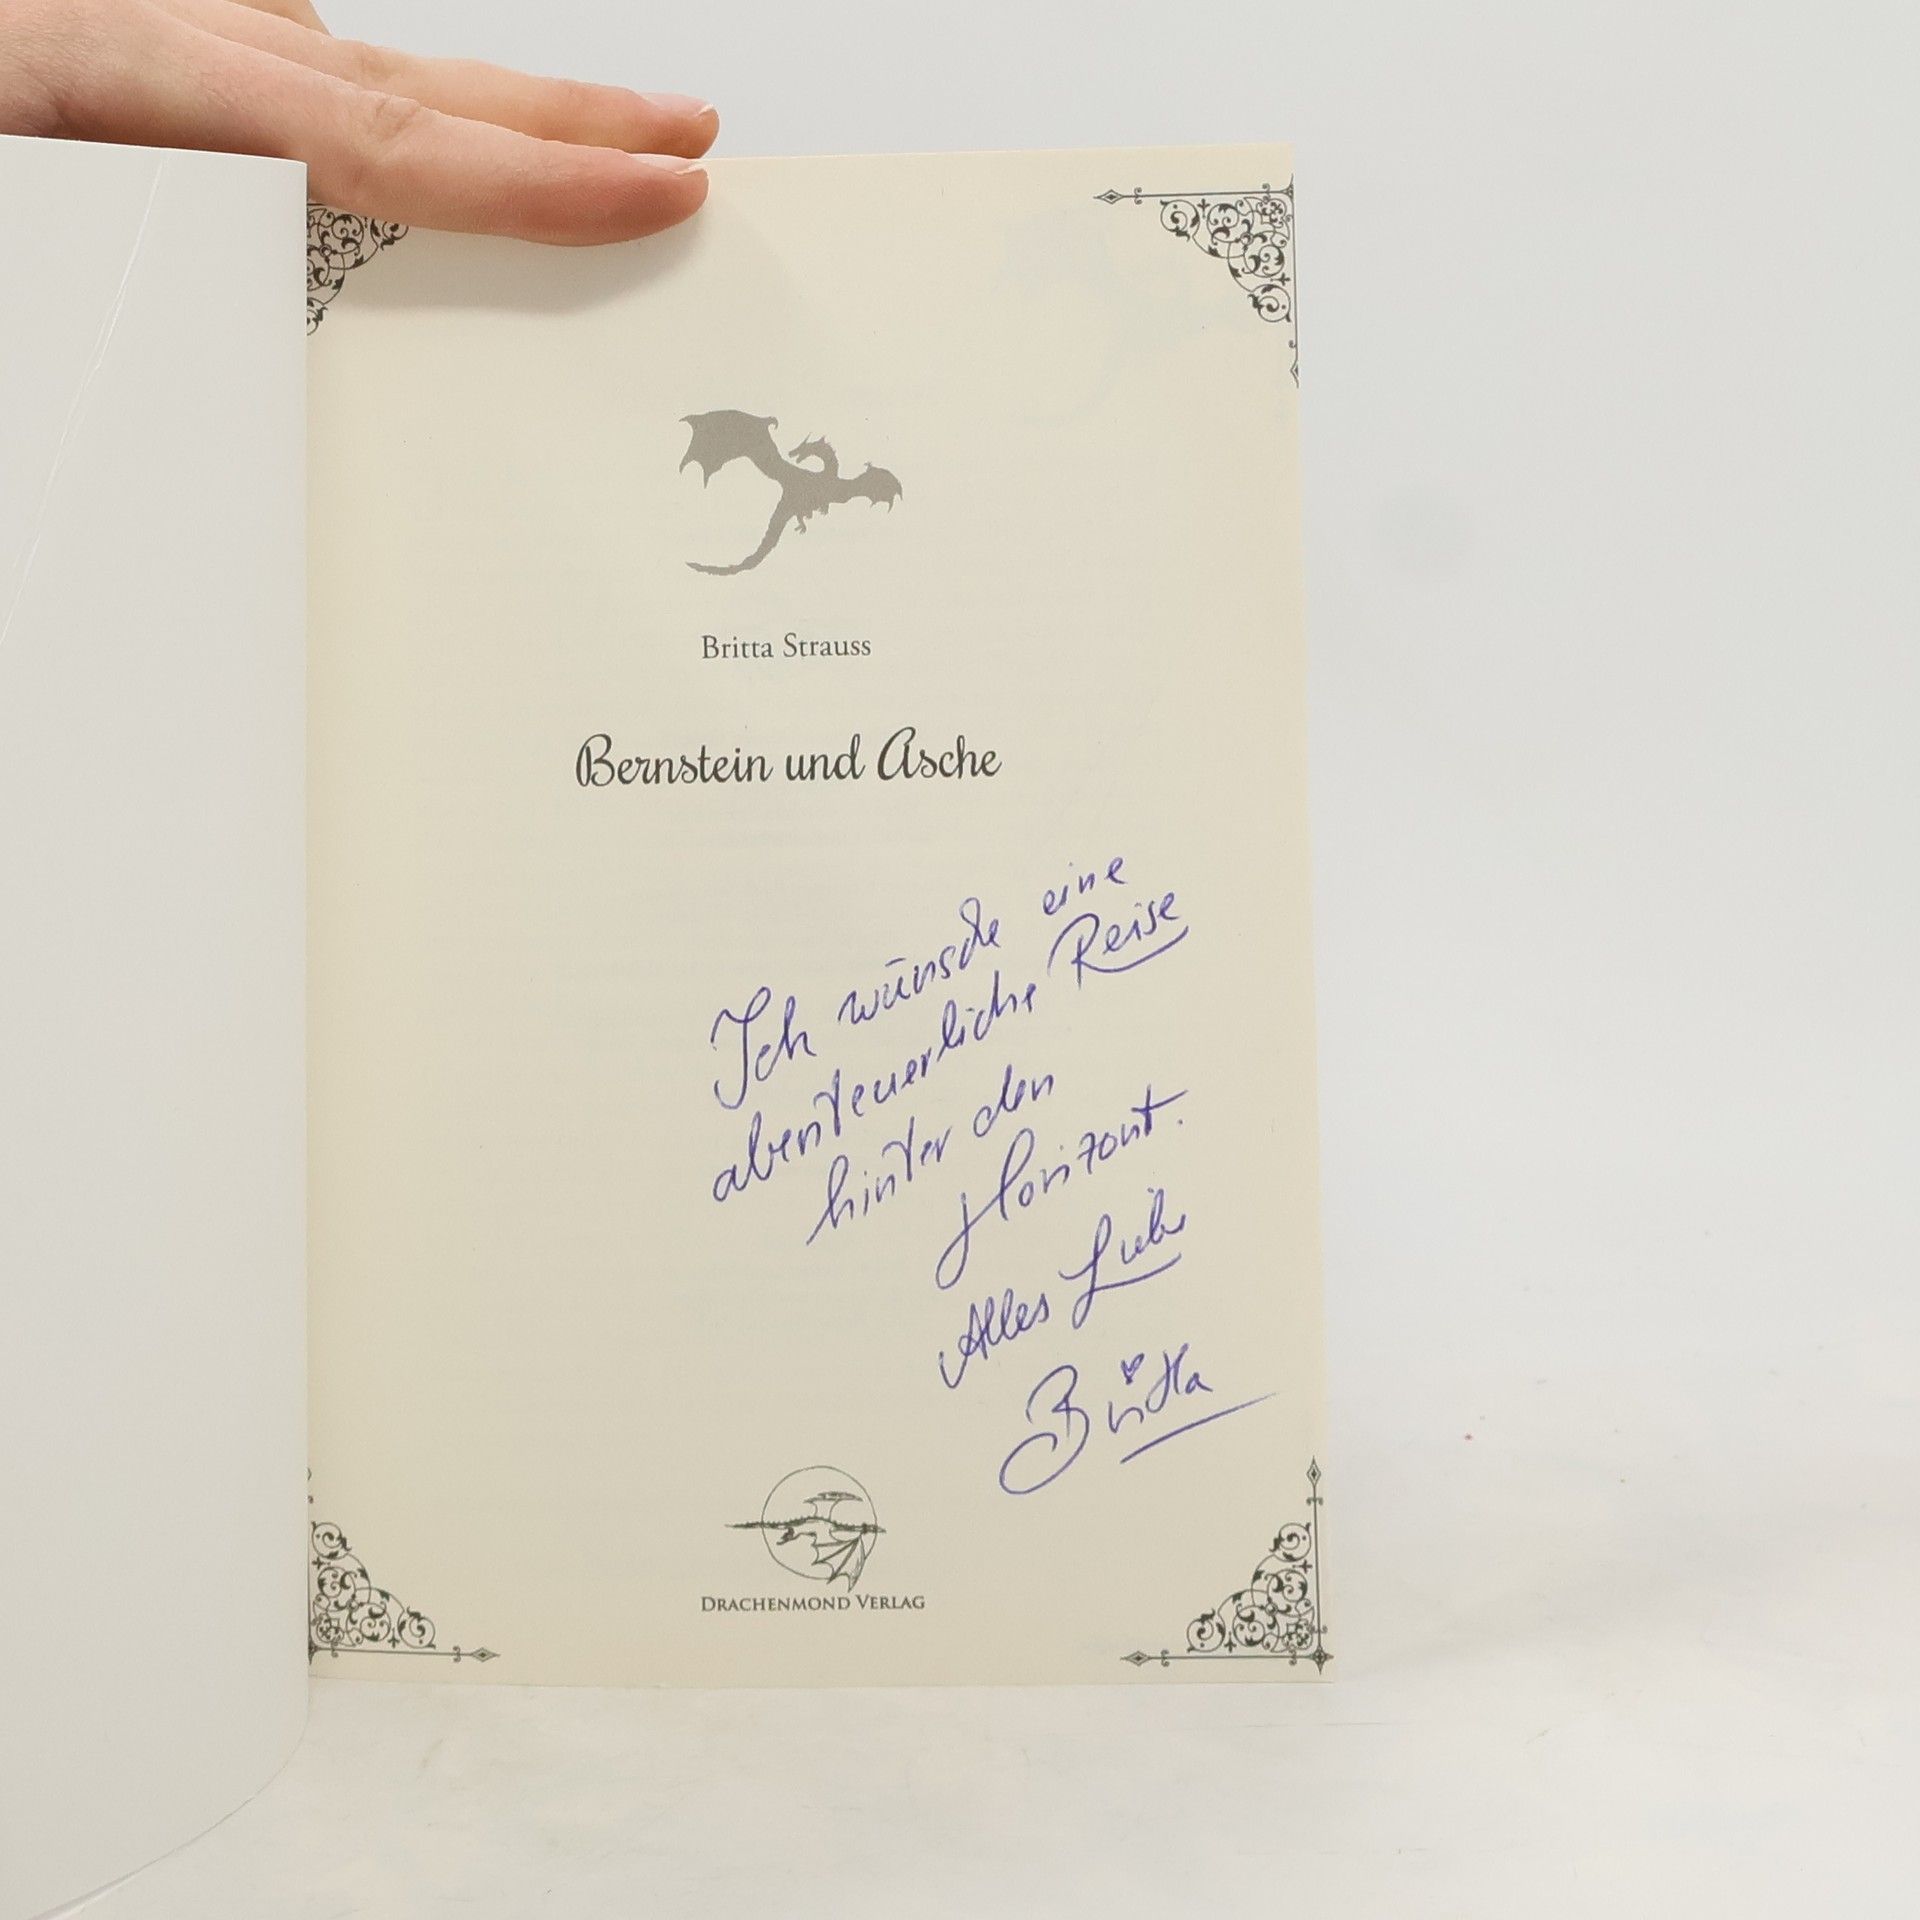 Britta Strauss
Bernstein und Asche
Ich wünsche eine
abenteuerliche Reise
hinter den
Horizont.
Alles Liebe
Britta
DRACHENMOND VERLAG